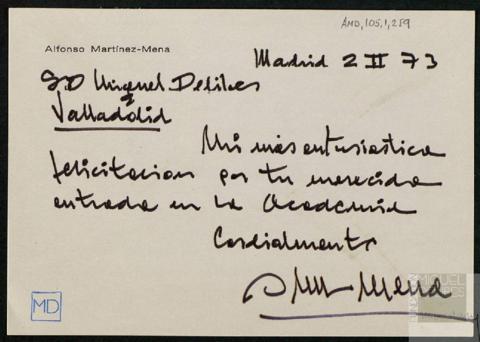 AMD,105,1,259
Alfonso Martínez-Mena
Madrid 2 II 73
S.D Miguel Delibes
Valladolid
Mi más entusiastica
felicitacion por tu merecida
entrada en la Academia
Cordialmente
Mena
MD
MIGUEL